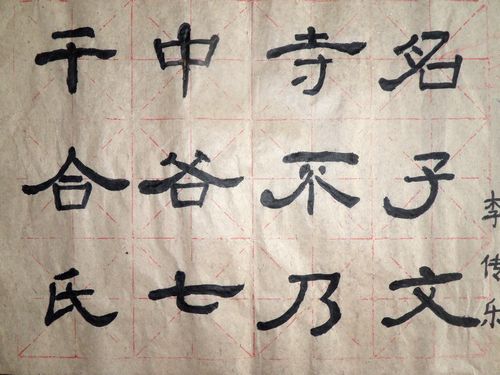 名子文
寺不乃
中谷七
干合氏
李传乐